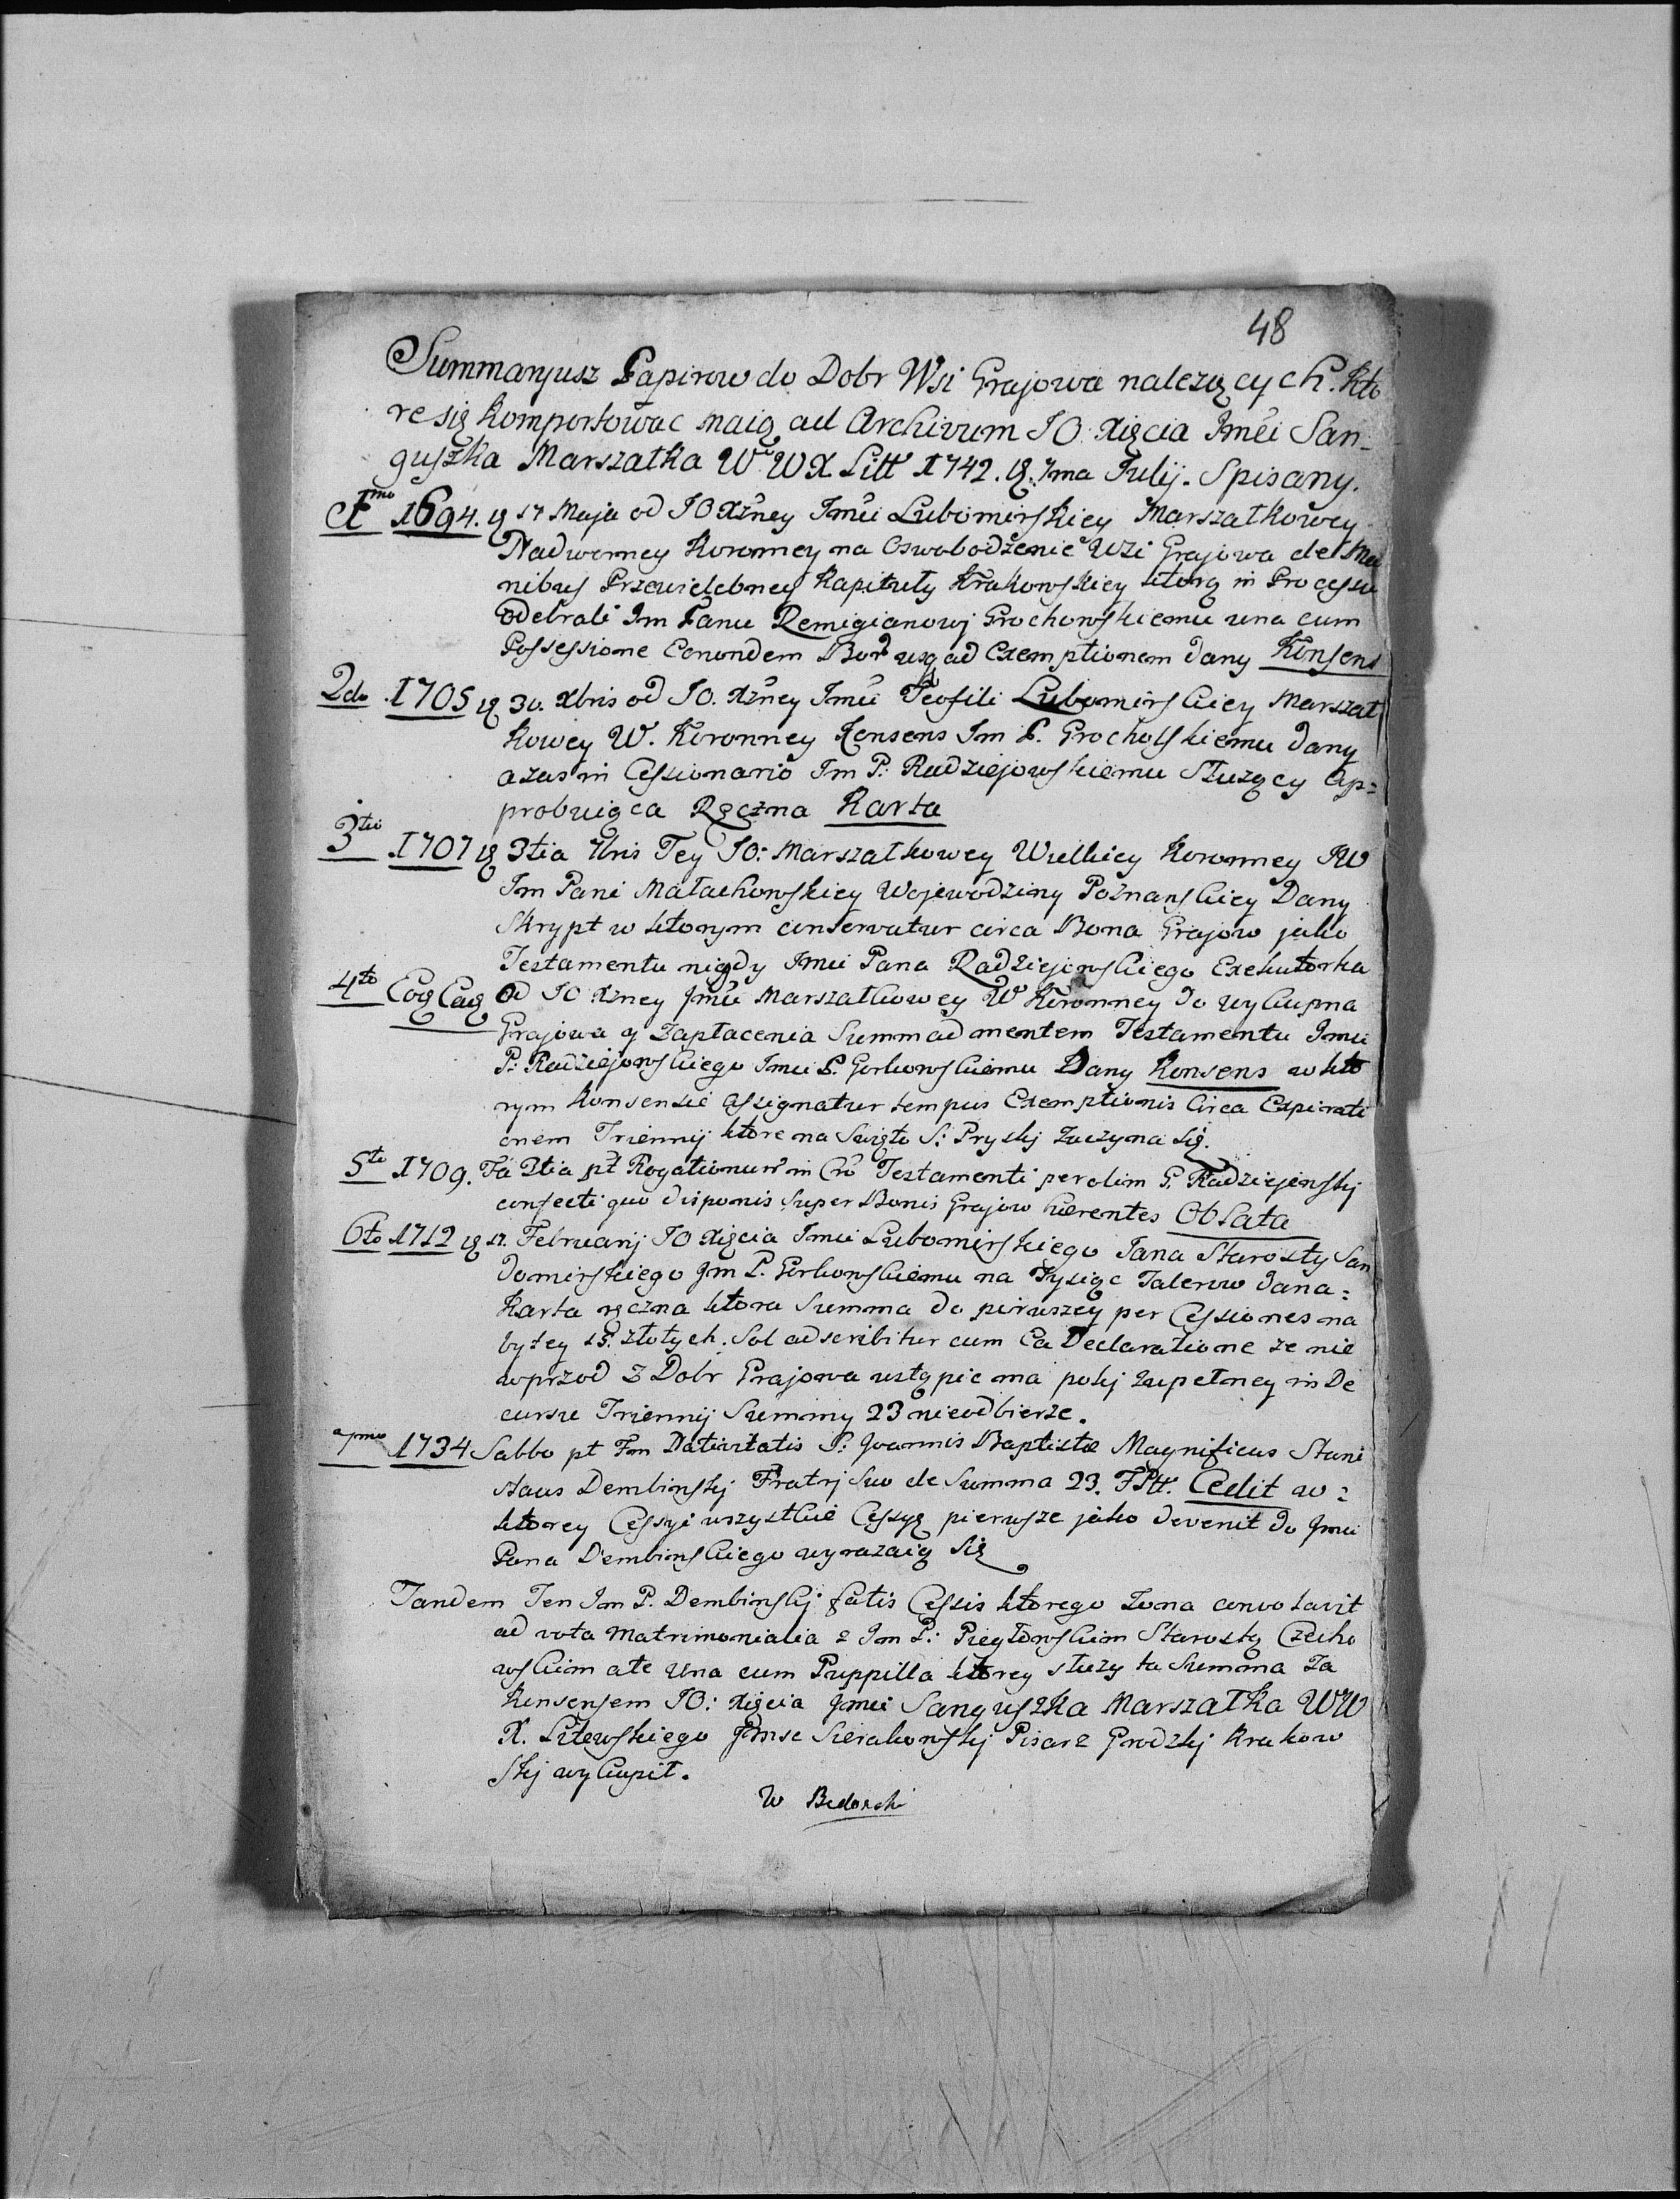 48
Summaryusz Papirow do Dobr Wsi Grajowa należących. Kto
re się komportowac maią ad Archivum JO Xięcia Jmći San-
guszka Marszałka W WX Litt 1742. d. 7ma Julij. Spisany.
1mo 1694. d 17 Maja od JO Xżney Jmći Lubomirskiey Marszałkowey
Nadworney Koronney na Oswobodzenie Wsi Grajowa de Ma
nibus Przewielebney Kapituły Krakowskiey którą in Processu
odebrali Jm Panu Remigianowj Grochowskiemu una cum
Possessione Eorundem Bon usq ad Exemptionem dany Konsens
2do 1705 d 30. Xbris od JO. Xżney Jmći Teofili Lubomirskiey Marszał
kowey W. Koronney Konsens Jm P. Grocholskiemu dany
a zas in Cessionario Jm P: Radziejowskiemu służący Ap=
probuiąca Ręczna Karta
3tio 1707 d 3tia 7bris Tey JO: Marszałkowey Wielkiey Koronney JW
Jm Pani Małachowskiey Wojewodziny Poznanskiey Dany
Skrypt w ktorym conservatur circa Bona Grajow jako
Testamentu nigdy Jmći Pana Radziejowskiego Exekutorka
4to Eoq Eaq Od JO Xżney Jmći Marszałkowey W Koronney do wykupna
Grajowa y zapłacenia Summ ad mentem Testamentu Jmći
P: Radziejowskiego Jmći P. Gorkowskiemu Dany Konsens w kto
rym Konsensie assignatur tempus Exemptionis Circa Expirati
onem Triennij ktore na Swięto S: Pryskj zaczyna się.
5to 1709. Fa 2tia pt Rogationum in Cro Testamenti per olim G. Radziejewskj
confecti quo disponis super Bonis Grajow hærentes Oblata
6to 1712 d 17. Februarij JO Xięcia Jmći Lubomirskiego Jana Starosty San
domirskiego Jm P. Gorkowskiemu na Tysiąc Talerow dana=
Karta ręczna ktora Summa do pierwszey per Cessiones na
bytey 15. złotych. Sol adscribitur cum Ea Declaratione ze nie
wprzod z Dobr Grajowa ustąpic ma pokj zupełney in De
cursu Triennij Summy 23 nieodbierze.
7mo 1734 Sabbo pt Fm Nativitatis S: Joannis Baptistæ Magnificus Stani
slaus Dembinskj Fratrj suo de Summa 23. FPtt. Cedit w=
ktorey Cessyi wszystkie Cessye pierwsze jako devenit do Jmći
Pana Dembinskiego wyrazaią się
Tandem Ten Jm P. Dembinskj fatis Cessis ktorego zona convolavit
ad vota Matrimonialia z Jm P: Piegłowskim Starostą Czcho
wskim ale una cum Puppilla ktorey służy ta Summa za
Konsensem JO: Xięcia Jmći Sanguszka Marszałka WW
X. Litewskiego Jmsc Sierakowskj Pisarz Grodzkj Krakow
skj wykupił.